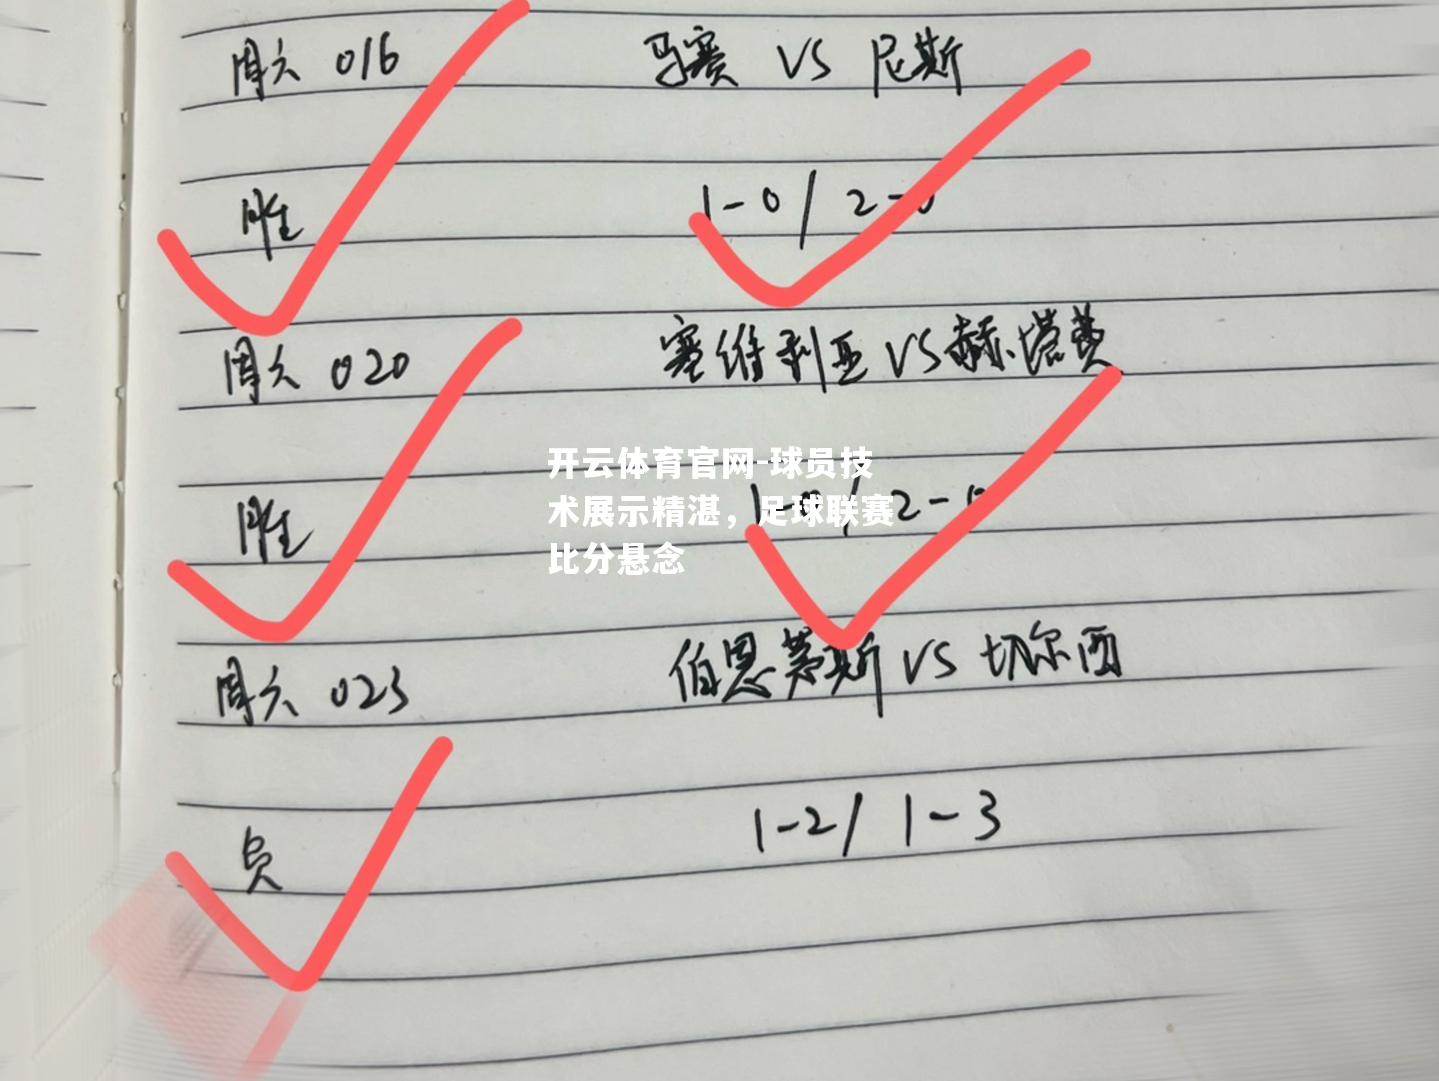 周六 016 马赛 VS 尼斯
胜 1-0 / 2-0
周六 020 塞维利亚 VS 赫塔费
开云体育官网-球员技
术展示精湛，足球联赛
比分悬念
胜 1-0 / 2-0
周六 023 伯恩茅斯 VS 切尔西
负 1-2 / 1-3